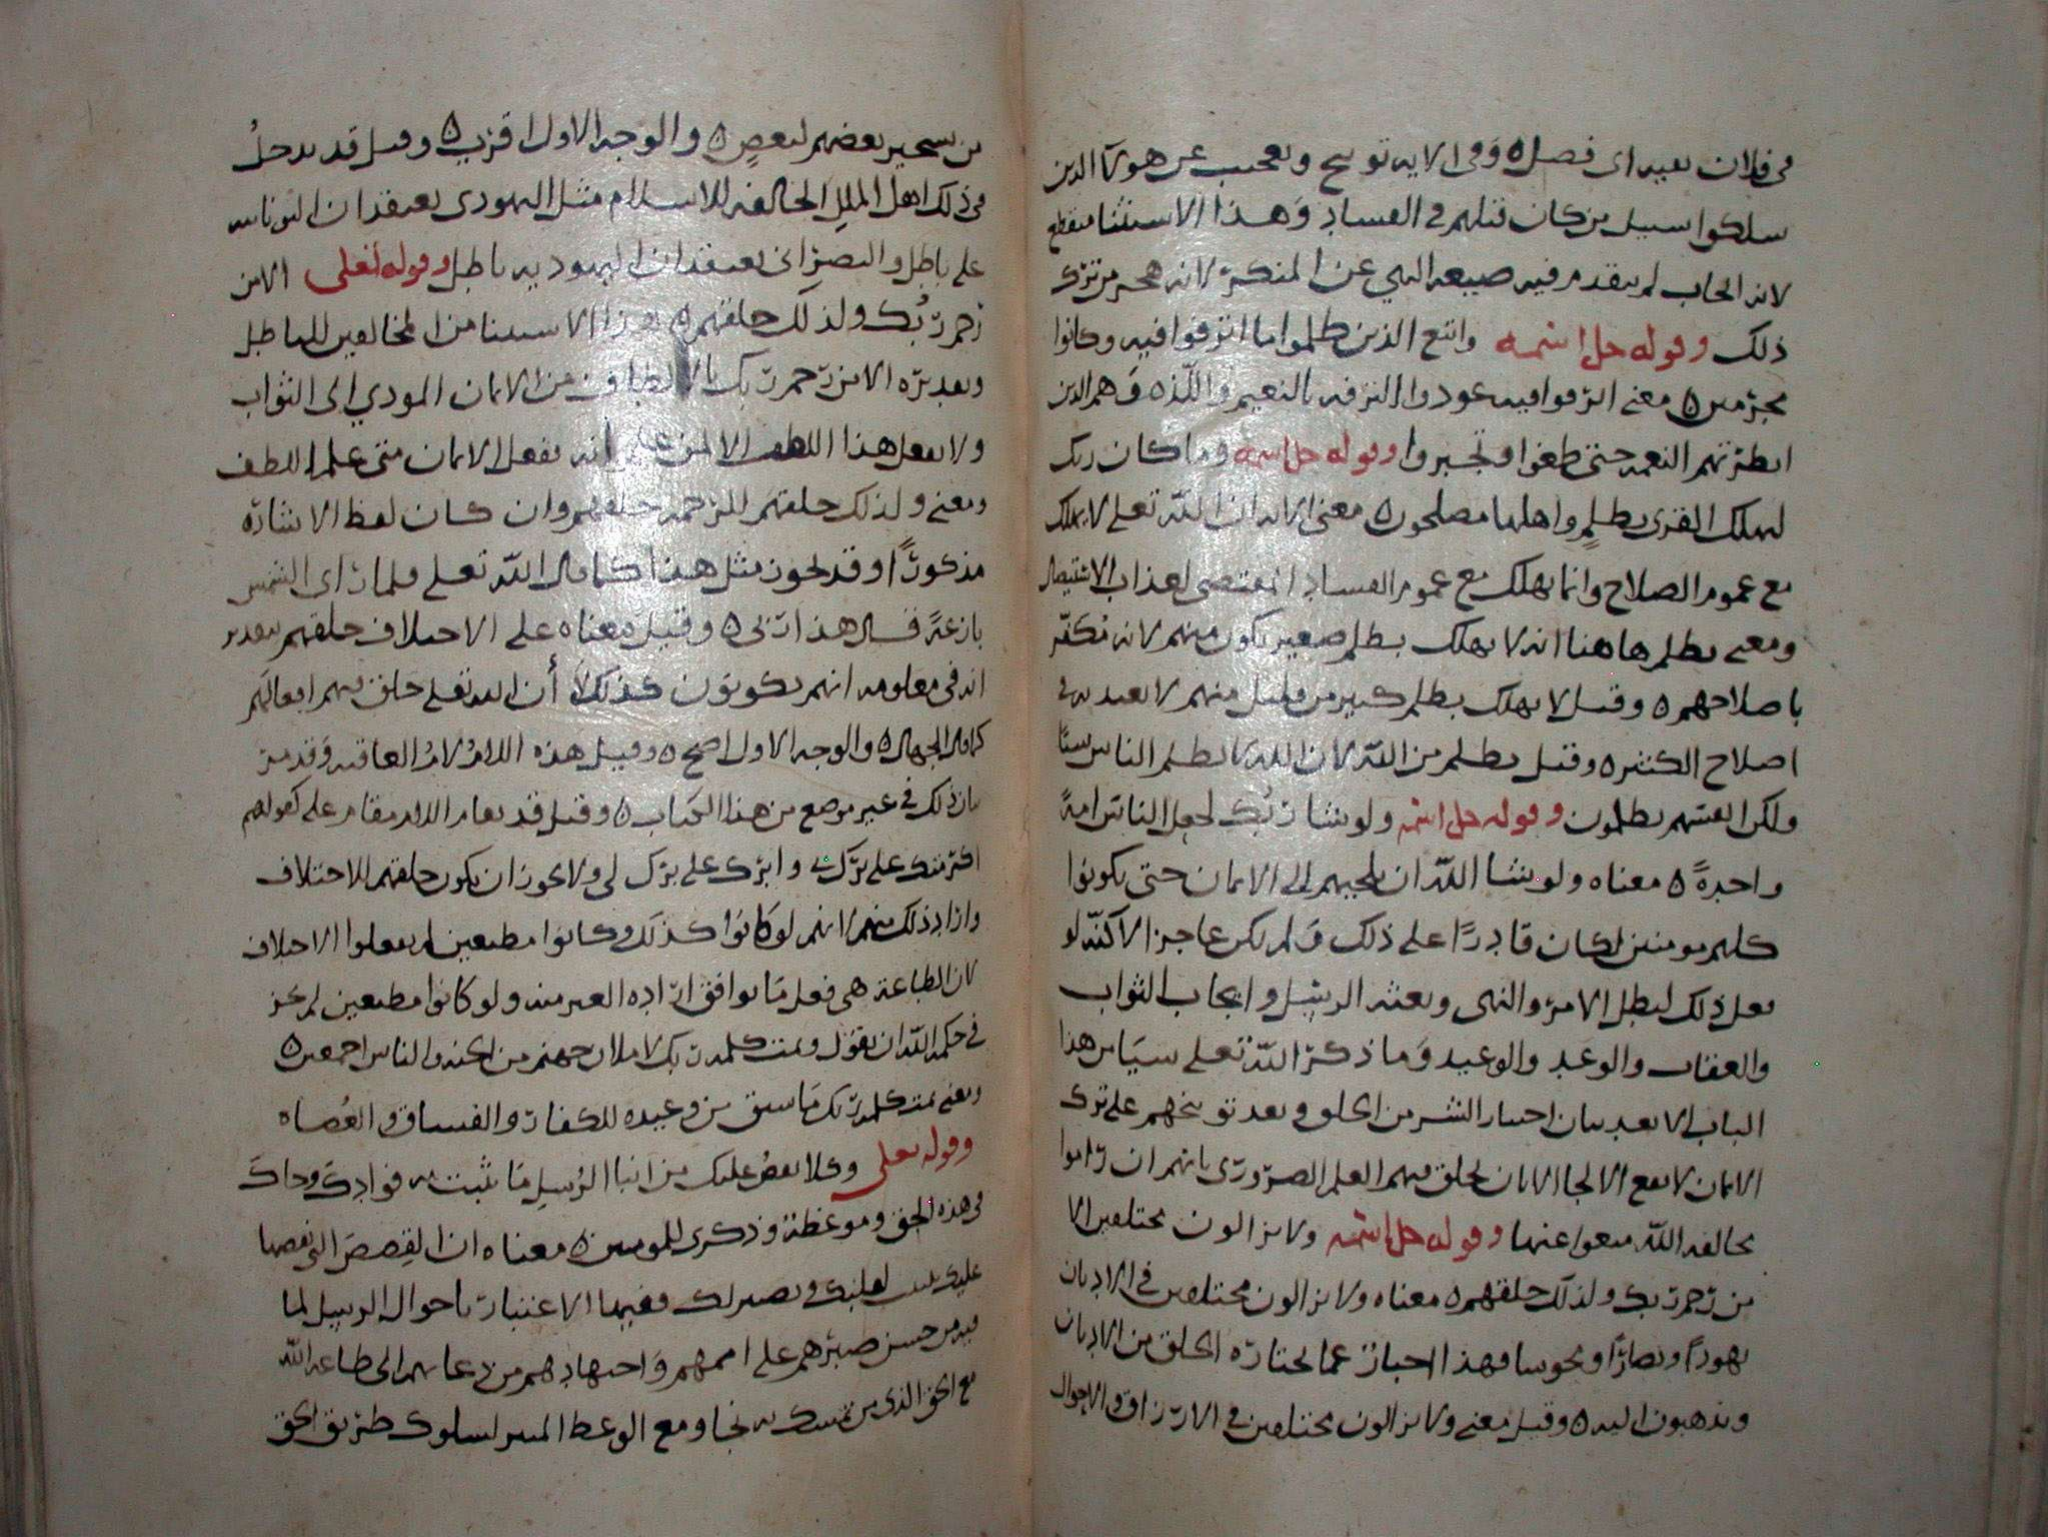 في فلان بقيه اى فضل ٥ وفى الايه توبيخ وتعجيب عن هولآ الذين
سلكوا سبيل من كان قبلهم في الفساد وهذا الاستثنا منقطع
لانه ايجاب لم يتقدم فيه صيغه النهي عن المنكر لانه
ذلك وقوله جل اسمه واتبع الذين ظلموا ما اترفوا فيه وكانوا
مجرمين ٥ معنى اترفوا فيه عودوا الترفه بالنعيم واللذه وهم الذين
ابطرتهم النعمه حتى طغوا وتجبروا وقوله جل اسمه وما كان ربك
ليهلك القرى بظلمٍ واهلها مصلحون ٥ معنى الايه ان الله تعلى لا يهلك
مع عموم الصلاح وانما يهلك مع عموم الفساد المقتضى لعذاب الاستيصال
ومعنى بظلم هاهنا انه لا يهلك بظلم صغير يكون منهم لانه مكفر
باصلاحهم ٥ وقيل لا يهلك بظلم كبير من قليل منهم لا يعتد به في
اصلاح الكثره وقيل بظلم من الله لان الله لا يظلم الناس شيا
ولكن انفسهم يظلمون وقوله جل اسمه ولو شا ربك لجعل الناس امةً
واحدةً ٥ معناه ولو شا الله ان يلجيهم الى الايمان حتى يكونوا
كلهم مومنين لكان قادرًا على ذلك ولم يكن عاجزا لاكنه لو
فعل ذلك لبطل الامر والنهى وبعثه الرسل وايجاب الثواب
والعقاب والوعد والوعيد وما ذكر الله تعلى سيا من هذا
الباب الا بعد بيان اختيار الشر من الخلق وبعد توبيخهم على ترك
الايمان لا يقع الالجا الا بان يخلق فيهم العلم الضروري بانهم ان راموا
مخالفه الله منعوا عنها وقوله جل اسمه ولا يزالون مختلفين الا
من رحم ربك ولذلك خلقهم ٥ معناه ولا يزالون مختلفين في الاديان
يهودًا ونصارًا ومجوسا فهذا اخبار عما يختاره الخلق من الاديان
ويذهبون اليه ٥ وقيل معنى ولا يزالون مختلفين في الارزاق والاحوال
من تسخير بعضهم لبعضٍ ٥ والوجه الاول اقرب ٥ وقيل قد يدخلُ
في ذلك اهل الملل المخالفه للاسلام مثل اليهودى يعتقد ان
على باطل والنصرانى يعتقد ان اليهوديه باطل وقوله تعلى الا من
رحم ربُك ولذلك خلقهم ٥ هذا الاستثنا من المخالفين للباطل
وتقديره الا من رحم ربك بالالطاف من الايمان المودي الى الثواب
ولا يفعل هذا اللطف الا لمن علم انه يفعل الايمان متى علم اللطف
ومعنى ولذلك خلقهم للرحمه خلقهم وان كان لفظ الاشاره
مذكورًا وقد يجوز مثل هذا كما قال الله تعلى فلما راى الشمس
بازغةً قال هذا ربى ٥ وقيل معناه على الاختلاف خلقهم بتقدير
انه في معلومه انهم يكونون كذلك لا أن الله تعلى خلق فيهم افعالهم
كما قال الجهال ٥ والوجه الاول اصح ٥ وقيل هذه اللام لامُ العاقبه وقد مر
بيان ذلك في غير موضع من هذا الكتاب ٥ وقيل قد تقام اللام مقام على كقولهم
اكرمتك على برك بى وابرك على برك لى ولا يجوز ان يكون خلقهم للاختلاف
واراد ذلك منهم لانهم لو كانوا كذلك وكانوا مطيعين لم يفعلوا الاختلاف
لان الطاعه هى فعل ما يوافق اراده الغير منه ولو كانوا مطيعين لم يجز
في حكم الله ان يقول وتمت كلمه ربك لاملان جهنم من الجنه والناس اجمعين ٥
ومعنى تمت كلمه ربك ما سبق من وعيده للكفار والفساق والعُصاه
وقوله تعلى وكلا نقص عليك من انبا الرسل ما نثبت به فوادك وجاك
في هذه الحق وموعظة وذكرى للمومنين ٥ معناه ان القصص التى نقصها
عليك تثبيت لقلبك وتصبر لك وفيها الاعتبار باحوال الرسل لما
فيه من حسن صبرهم على اممهم واجتهادهم من دعايهم الى طاعه الله
مع الحق الذى من تمسك به نجا ومع الوعظ الميسر لسلوك طريق الحق